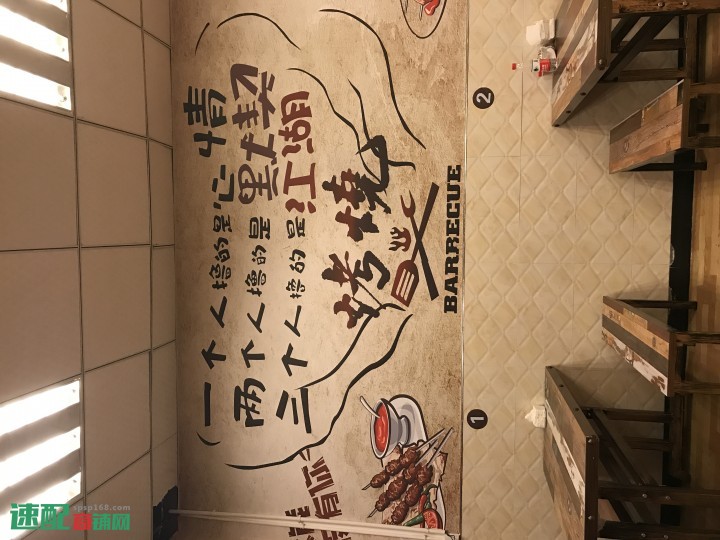 一个人撸的是心情
两个人撸的是默契
三个人撸的是江湖
烤燒
BARRECUE
有你
1
2
速配商铺网
spsp168.com